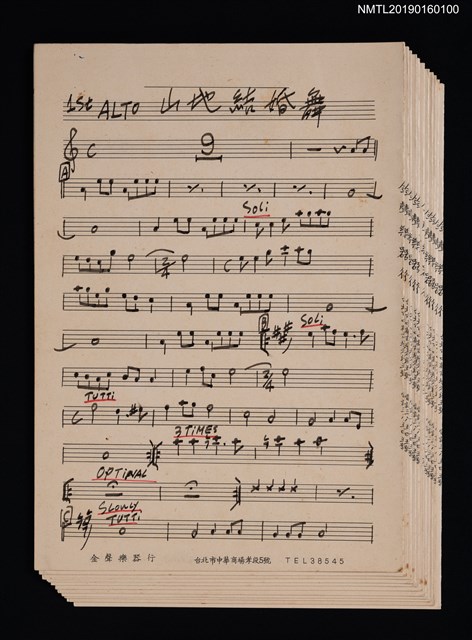 NMTL20190160100
1St ALTO 山地結婚舞
C 9
A
SOLI
2/4 C
B SOLI
2/4
TUTTI
C
3 TIMES
OPTINAL
C SLOWLY
TUTTI
金聲樂器行 台北市中華商場孝段5號 TEL38545